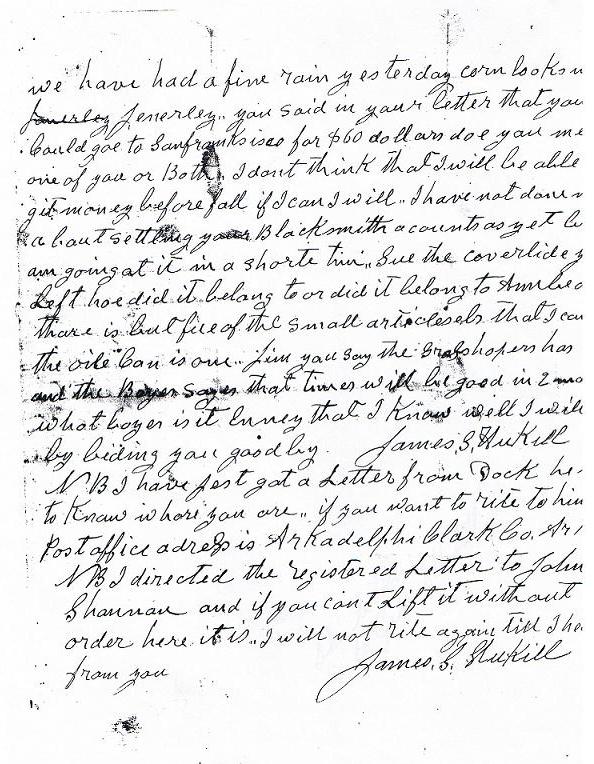 we have had a fine rain yesterday corn looks
Jenerley Jenerley.. you said in your letter that you
Could goe to Sanfranksisco for $60 dollars doe you me
one of you or Both. I dont think that I will be able
git money before fall if I can I will.. I have not done
a bout settling your Blacksmith acounts as yet
am going at it in a shorte tim.. Sue the coverlide
Left hoe did it belong to or did it belong to Ann
thare is but fue of the small articlesels that I can
the oile Can is one.. Jim you say the Grasshopers has
and the Boyes Sayes that times will be good in 2 mo
what boyes is it Enney that I Know well I will
by biding you good by. James S, Hukill
NB I have jest got a Letter from Dock he
to Know whare you are.. if you want to rite to him
Post office adress is Arkadelphi Clark Co, Ar
NB I directed the registered Letter to John
Shannan and if you cant Lift it without
order here it is.. I will not rite again till I he
from you James. S. Hukill